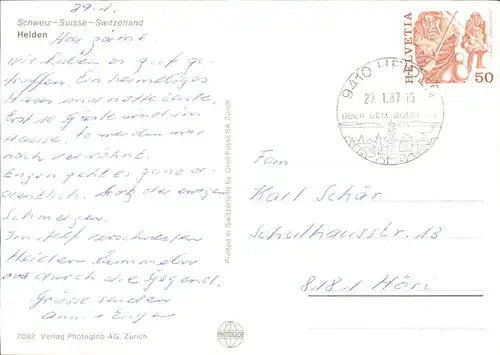 29.1.
Schweiz - Suisse - Switzerland
Heiden
wir haben es gut ge-
troffen. Ein heimeliges
Haus und nette Leute.
Erst 10 Gäste sind im
Hause. So werden wir
noch verwöhnt.
Eugen geht es ganz or-
dentlich, trotz der ewigen
Schmerzen.
Im tief verschneiten
Heiden bummeln
wir durch die Gegend.
Grüsse senden
+ Eugen
7082 Verlag Photoglob AG, Zürich
Printed in Switzerland by Orell Füssli SA, Zürich
PHOTOGLOB
HELVETIA
50
9410 HEIDEN
29.1.87-15
ÜBER DEM BODENSEE
Fam
Karl Schär
Schulhausstr. 13
8181 Höri